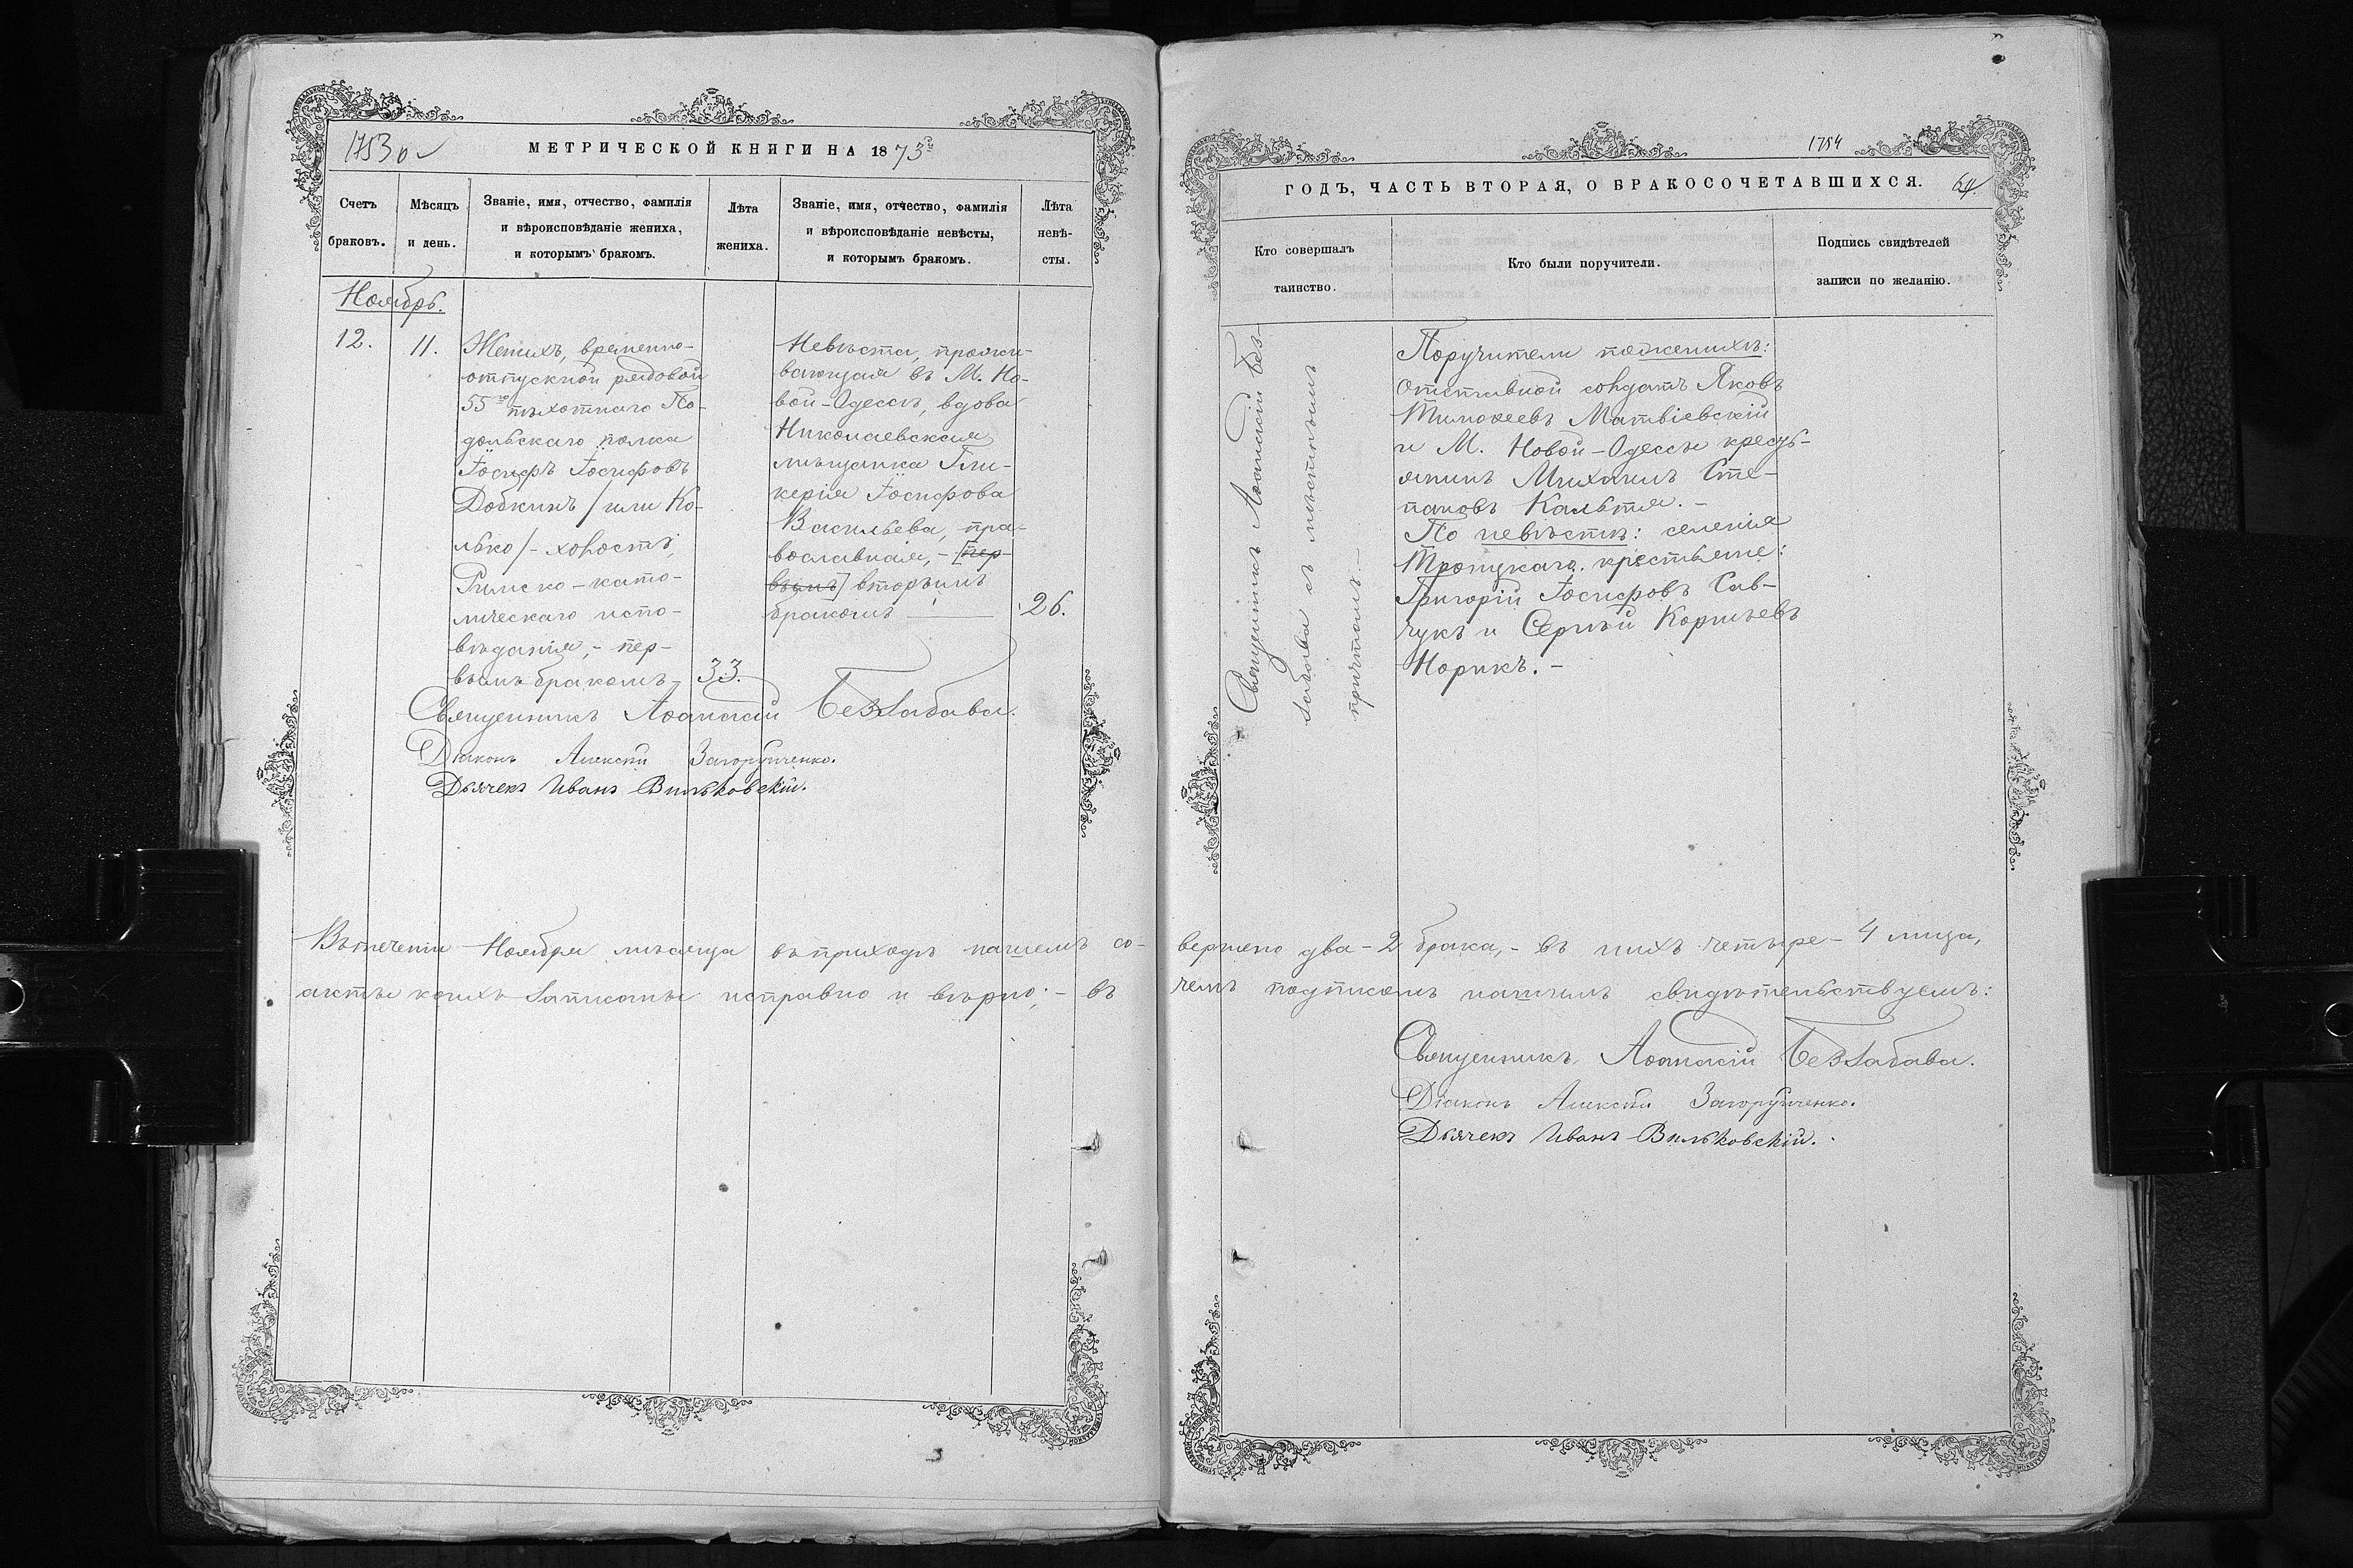 1753 об
МЕТРИЧЕСКОЙ КНИГИ НА 1873й
Счетъ браковъ.
Мѣсяцъ и день.
Званіе, имя, отчество, фамилія
и вѣроисповѣданіе жениха,
и которымъ бракомъ.
Лѣта жениха.
Званіе, имя, отчество, фамилія
и вѣроисповѣданіе невѣсты,
и которымъ бракомъ.
Лѣта невѣ-
сты.
Ноябрь.
12.
11.
Женихъ, временно-
отпускной рядовой
55го пѣхотнаго По-
дольскаго полка
Іосифъ Іосифовъ
Добкинъ /или Ко-
лько/ - холостъ,
Римско-като-
лическаго испо-
вѣданія, - пер-
вымъ бракомъ
33.
Невѣста, прожи-
вающая въ М. Но-
вой-Одессѣ, вдова
Николаевская
мѣщанка Гли-
керія Іосифова
Васильева, пра-
вославная, - [пер-
вымъ] вторымъ
бракомъ
26.
Священникъ Аѳанасій Беззабава.
Діаконъ Алексѣй Загоруйченко.
Дьячекъ Иванъ Вильковскій.
Втеченіи Ноября мѣсяца въ приходѣ нашемъ со-
акты коихъ записаны исправно и вѣрно; - въ
1754
ГОДЪ, ЧАСТЬ ВТОРАЯ, О БРАКОСОЧЕТАВШИХСЯ.
64
Кто совершалъ
таинство.
Кто были поручители.
Подпись свидѣтелей
записи по желанію.
Священникъ Аѳанасій Без-
забава съ мѣстнымъ
причтомъ. -
Поручители по женихѣ:
Отставной солдатъ Яковъ
Тимоѳеевъ Матвіевскій
и М. Новой-Одессы кресть-
янинъ Михаилъ Сте-
пановъ Кальтя. -
По невѣстѣ: селенія
Троицкаго крестьяне:
Григорій Іосифовъ Сав-
чукъ и Сергѣй Корнѣевъ
Норикъ. -
вершено два - 2 брака, - въ нихъ четыре - 4 лица,
чемъ подписомъ нашимъ свидѣтельствуемъ:
Священникъ Аѳанасій Беззабава.
Діаконъ Алексѣй Загоруйченко.
Дьячекъ Иванъ Вильковскій.